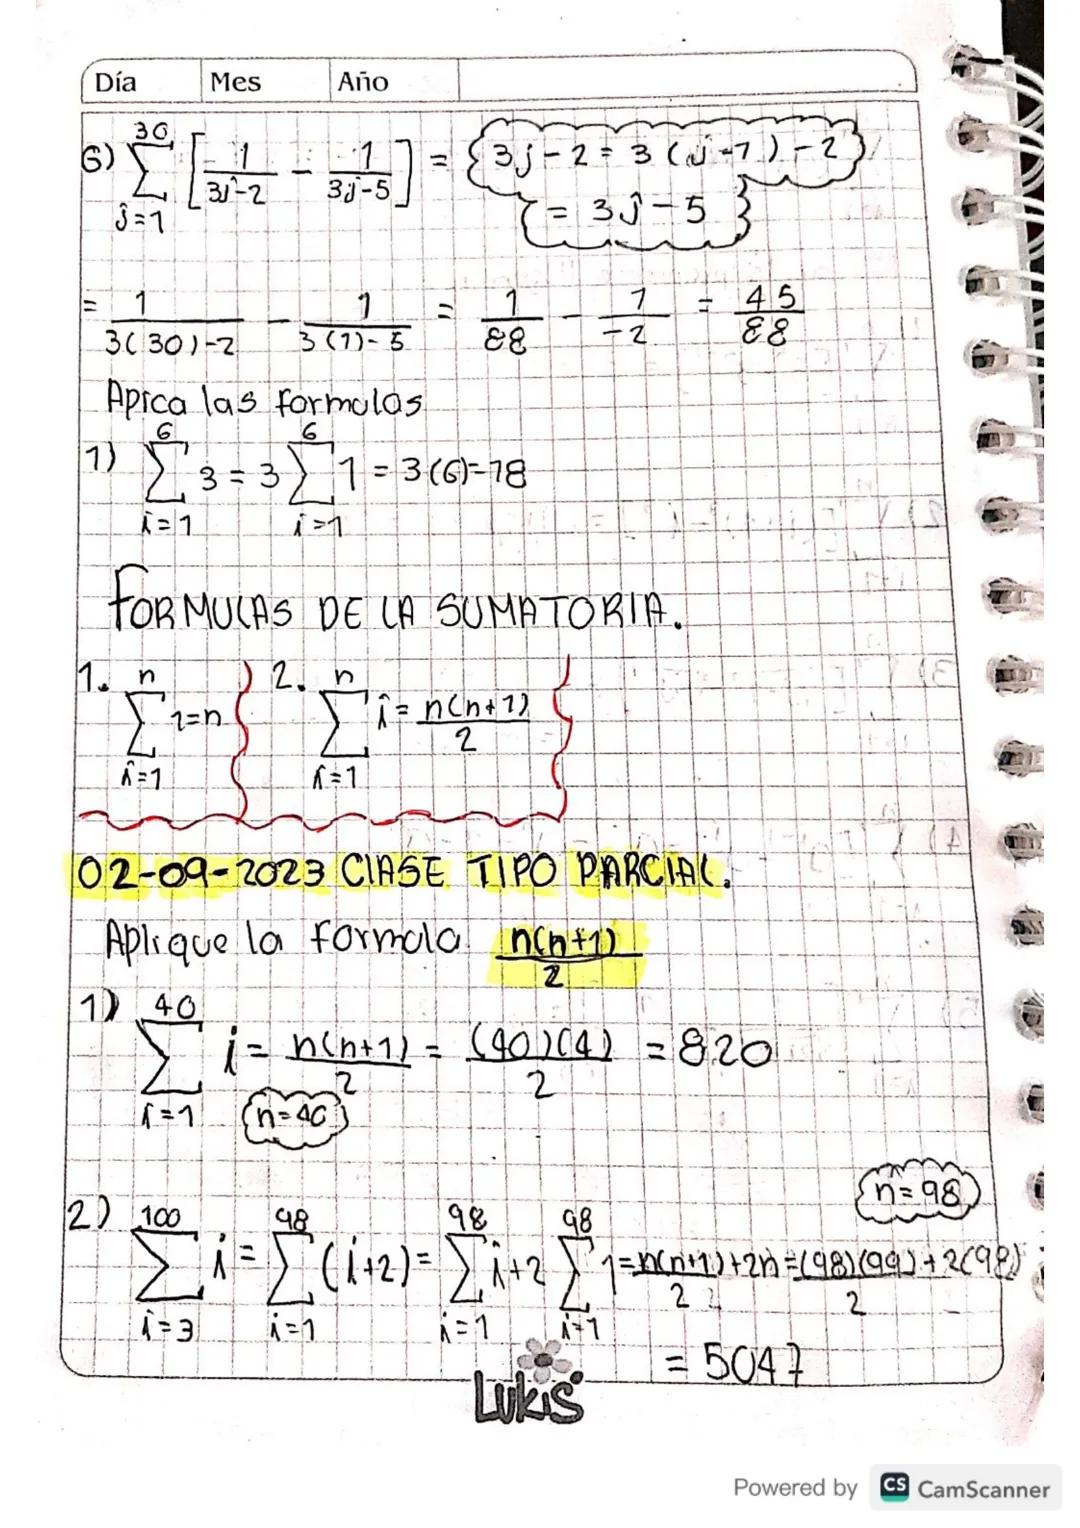 Día Mes Año
6) 30 ∑ j=1 [1/(3j-2) - 1/(3j-5)] = {3j-2 = 3(j-1)-2
= 3j-5}
= 1/(3(30)-2) - 1/(3(1)-5) = 1/88 - 1/-2 = 45/88
Aprca las formulas
1) 6 ∑ i=1 3 = 3 6 ∑ i=1 1 = 3(6)=18
FORMULAS DE LA SUMATORIA.
1. n ∑ i=1 1=n 2. n ∑ i=1 i = n(n+1)/2
02-09-2023 CLASE TIPO PARCIAL.
Aplique la formula n(n+1)/2
1) 40 ∑ i=1 i = n(n+1)/2 = (40)(4)/2 = 820
n=40
n=98
2) 100 ∑ i=3 i = 98 ∑ i=1 (i+2) = 98 ∑ i=1 i+2 98 ∑ i=1 1 = n(n+1)/2 + 2n = (98)(99)/2 + 2(98)
= 5047
Lukis
Powered by CS CamScanner